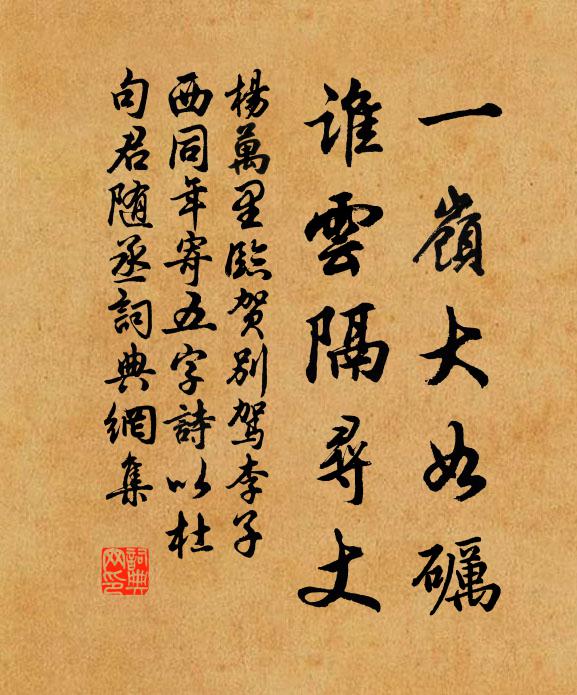 一嶺大如礪
誰雲隔尋丈
楊萬里臨賀別駕李子
西同年寄五字詩以杜
句君随丞詞典網集
詞典网印